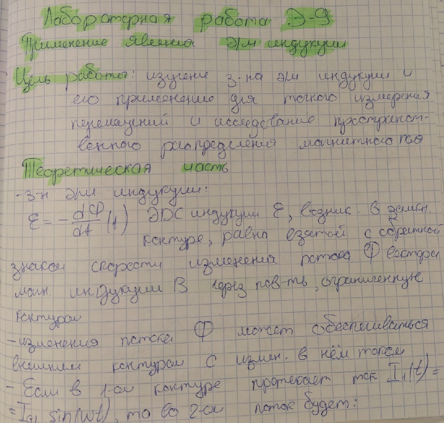 Лабораторная работа Э-9
Применение явления эм индукции
Цель работы: изучение з-на эм индукции и
его применение для точного измерения
перемещений и исследование пространст-
венного распределения магнитного поля
Теоретическая часть
- з-н эм индукции:
ℰ = - dФ/dt (1) ЭДС индукции ℰ, возник. в замкн.
контуре, равна взятой с обратной
знаком скорости изменения потока Ф вектора
магн индукции B через пов-ть, ограниченную
контуром
- изменения потока Ф может обеспечиваться
внешним контуром с измен. в нём током
- Если в 1-ом контуре протекает ток I₁(t) =
= I₀₁ sin(ωt), то во 2-ом поток будет: